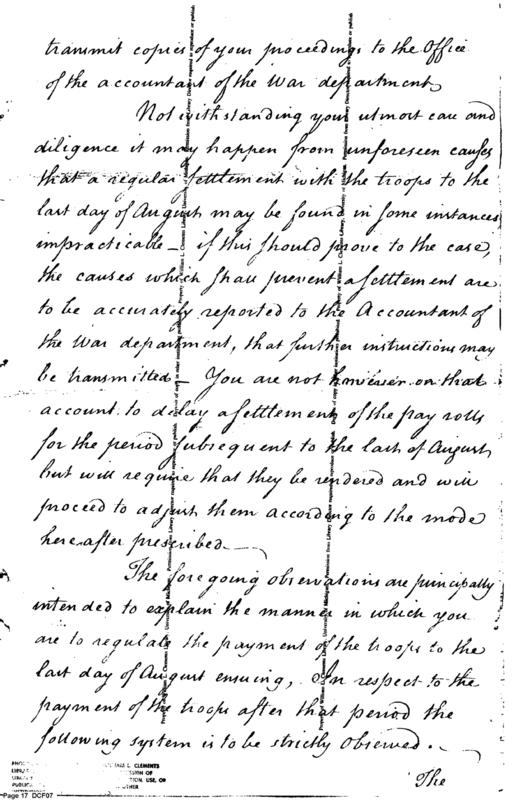 transmit copies of your proceedings to the Office
of the accountant of the War department
Notwithstanding your utmost care and
diligence it may happen from unforeseen causes
that a regular settlement with the troops to the
last day of August may be found in some instances
impracticable – if this should prove to the case,
the causes which shall prevent a settlement are
to be accurately reported to the Accountant of
the War department, that further instructions may
be transmitted – You are not however on that
account to delay a settlement of the pay rolls
for the period subsequent to the last of August,
but will require that they be rendered and will
proceed to adjust them according to the mode
hereafter prescribed –
The foregoing observations are principally
intended to explain the manner in which you
are to regulate the payment of the troops to the
last day of August ensuing, In respect to the
payment of the troops after that period the
following system is to be strictly observed. –
The
Page 17 DCF07